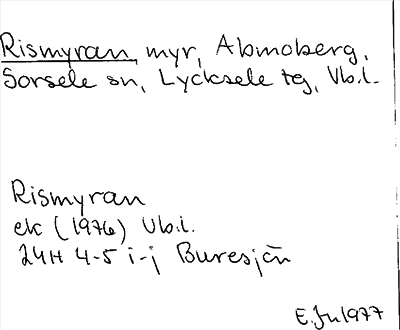 Rismyran, myr, Abmoberg,
Sorsele sn, Lycksele tg, Vb.l.
Rismyran
ek (1976) Vb.l.
24H 4-5 i-j Buresjön
E.Ju 1977